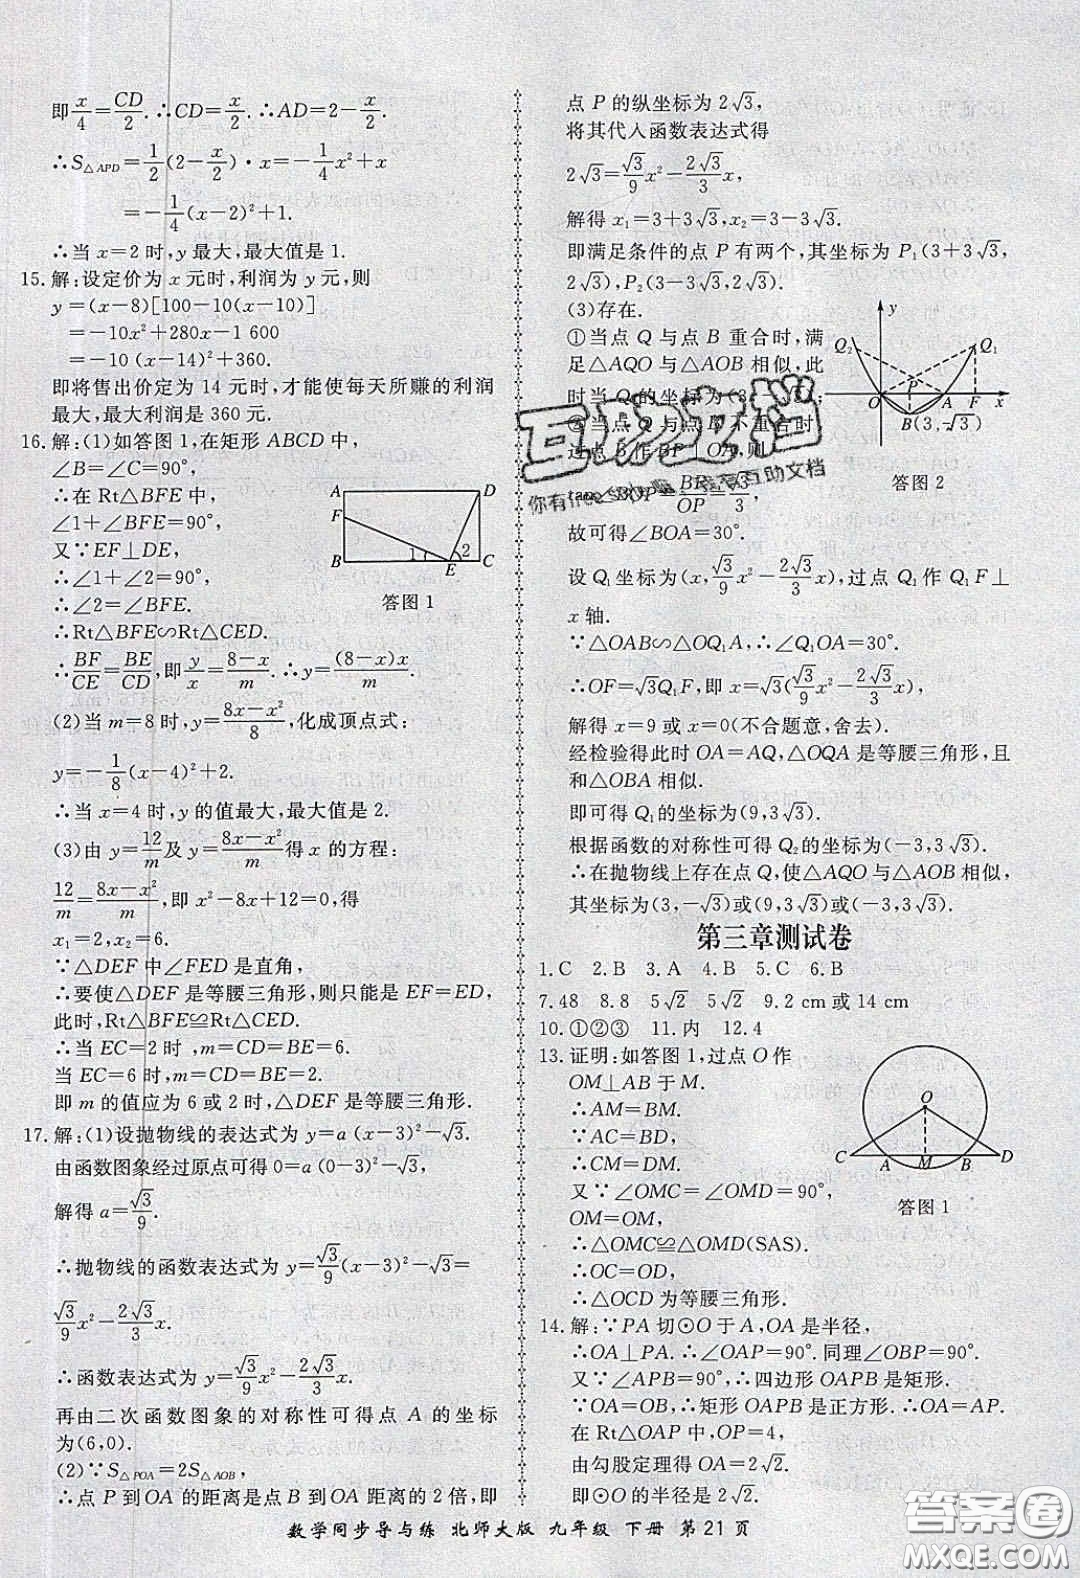 即x/4=CD/2.∴CD=x/2.∴AD=2-x/2.
∴S△APD=1/2(2-x/2)·x=-1/4x²+x
=-1/4(x-2)²+1.
∴当x=2时,y最大,最大值是1.
15.解:设定价为x元时,利润为y元,则
y=(x-8)[100-10(x-10)]
=-10x²+280x-1 600
=-10(x-14)²+360.
即将售出价定为14元时,才能使每天所赚的利润
最大,最大利润是360元.
16.解:(1)如答图1,在矩形ABCD中,
∠B=∠C=90°,
∴在Rt△BFE中,
∠1+∠BFE=90°,
又∵EF⊥DE,
∴∠1+∠2=90°,
∴∠2=∠BFE.
∴Rt△BFE∽Rt△CED.
A D F B E C 1 2
答图1
∴BF/CE=BE/CD,即y/x=(8-x)/m.∴y=(8-x)x/m.
(2)当m=8时,y=(8x-x²)/8,化成顶点式:
y=-1/8(x-4)²+2.
∴当x=4时,y的值最大,最大值是2.
(3)由y=12/m及y=(8x-x²)/m得x的方程:
12/m=(8x-x²)/m,即x²-8x+12=0,得
x₁=2,x₂=6.
∵△DEF中∠FED是直角,
∴要使△DEF是等腰三角形,则只能是EF=ED,
此时,Rt△BFE≌Rt△CED.
∴当EC=2时,m=CD=BE=6.
当EC=6时,m=CD=BE=2.
即m的值应为6或2时,△DEF是等腰三角形.
17.解:(1)设抛物线的表达式为y=a(x-3)²-√3.
由函数图象经过原点可得0=a(0-3)²-√3,
解得a=√3/9.
∴抛物线的函数表达式为y=√3/9(x-3)²-√3=
√3/9x²-2√3/3x.
∴函数表达式为y=√3/9x²-2√3/3x.
再由二次函数图象的对称性可得点A的坐标
为(6,0).
(2)∵S△POA=2S△AOB,
∴点P到OA的距离是点B到OA距离的2倍,即
点P的纵坐标为2√3,
将其代入函数表达式得
2√3=√3/9x²-2√3/3x,
解得x₁=3+3√3,x₂=3-3√3.
即满足条件的点P有两个,其坐标为P₁(3+3√3,
2√3),P₂(3-3√3,2√3).
(3)存在.
①当点Q与点B重合时,满
足△AQO与△AOB相似,此
时当Q的坐标为(3,-√3);
②当点Q与点B不重合时,
过点B作BP⊥OA,则
tan∠BOP=BP/OP=√3/3,
y Q₂ Q₁ P O A F x B(3,-√3)
答图2
互助文档
故可得∠BOA=30°.
设Q₁坐标为(x,√3/9x²-2√3/3x),过点Q₁作Q₁F⊥
x轴.
∵△OAB∽△OQ₁A,∴∠Q₁OA=30°.
∴OF=√3Q₁F,即x=√3(√3/9x²-2√3/3x),
解得x=9或x=0(不合题意,舍去).
经检验得此时OA=AQ,△OQA是等腰三角形,且
和△OBA相似.
即可得Q₁的坐标为(9,3√3).
根据函数的对称性可得Q₂的坐标为(-3,3√3).
∴在抛物线上存在点Q,使△AQO与△AOB相似,
其坐标为(3,-√3)或(9,3√3)或(-3,3√3).
第三章测试卷
1.C 2.B 3.A 4.B 5.C 6.B
7.48 8.8 5√2 5√2 9.2 cm或14 cm
10.①②③ 11.内 12.4
13.证明:如答图1,过点O作
OM⊥AB于M.
∴AM=BM.
∵AC=BD,
∴CM=DM.
又∵∠OMC=∠OMD=90°,
OM=OM,
∴△OMC≌△OMD(SAS).
∴OC=OD,
∴△OCD为等腰三角形.
O C A M B D
答图1
14.解:∵PA切⊙O于A,OA是半径,
∴OA⊥PA.∴∠OAP=90°.同理∠OBP=90°.
又∵∠APB=90°,∴四边形OAPB是矩形.
∵OA=OB,∴矩形OAPB是正方形.∴OA=AP.
在Rt△OAP中,OP=4,
由勾股定理得OA=2√2.
即⊙O的半径是2√2.
数学同步导与练 北师大版 九年级 下册 第21页
答案圈
MXQE.COM